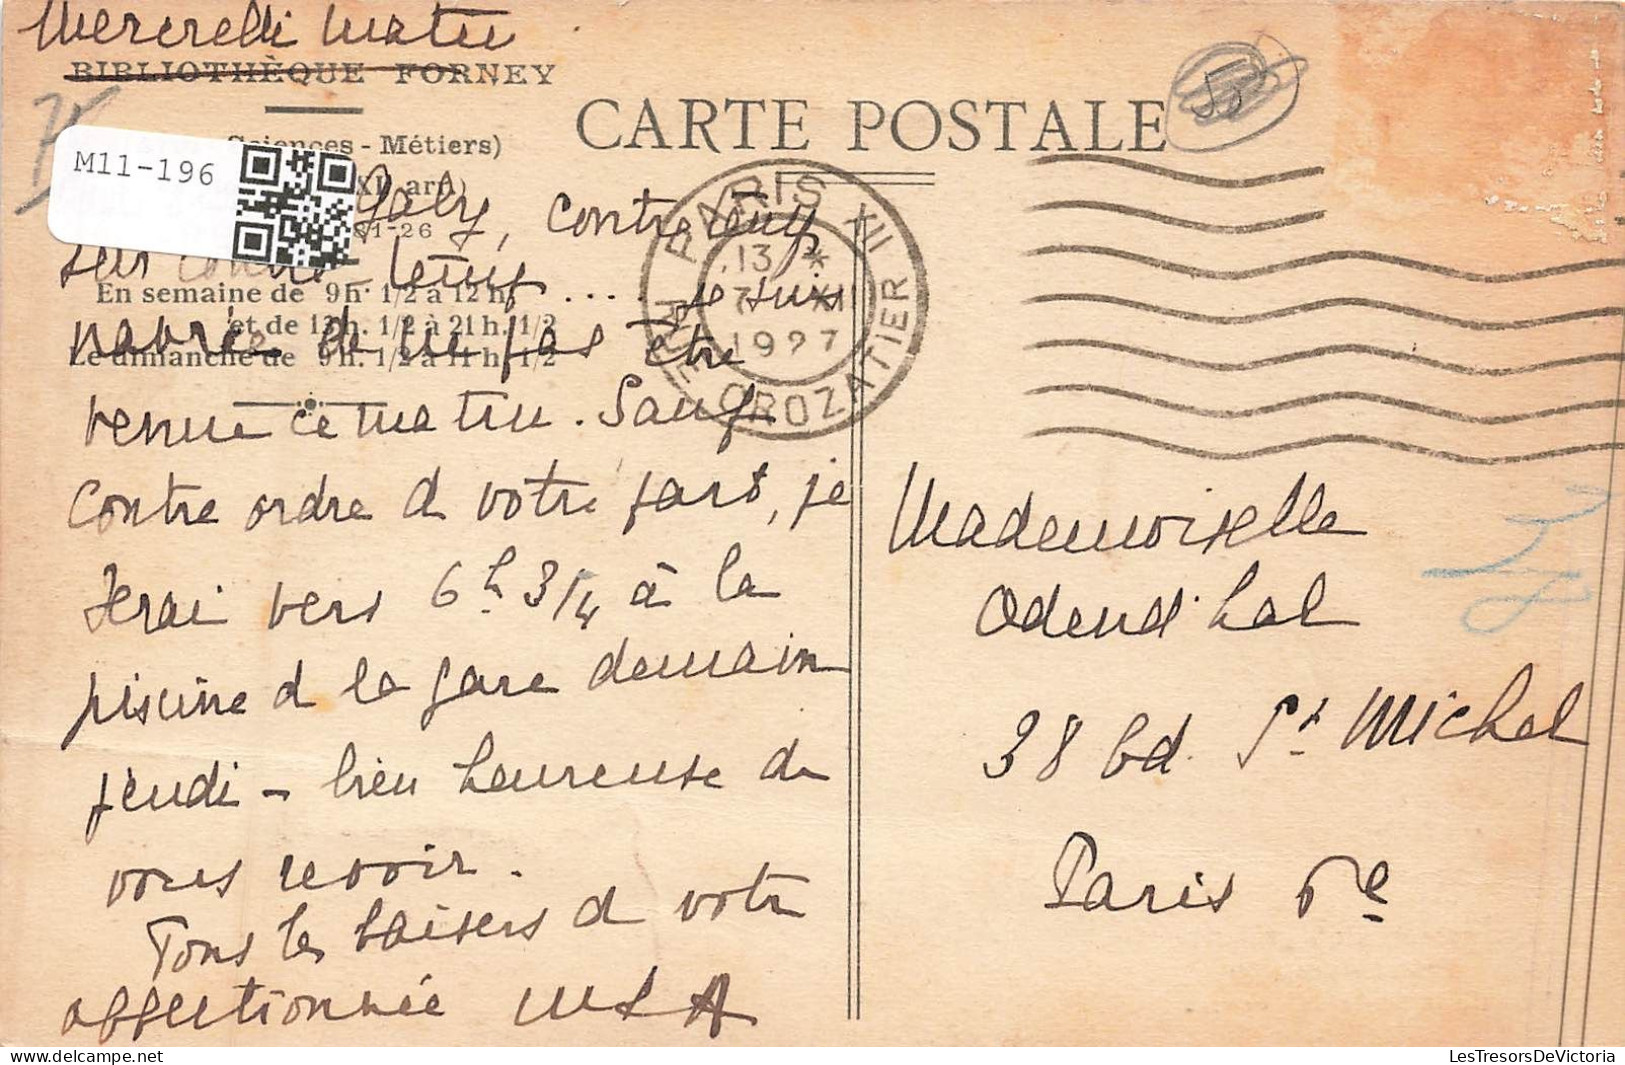 Mercredi matin
BIBLIOTHÈQUE FORNEY
Sciences - Métiers)
M11-196
XIIe arr
Galy, contretemps
81-26
sur contre-temps .... je suis
En semaine de 9h. 1/2 à 12 h.
et de 13h. 1/2 à 21 h. 1/2
navrée de ne pas être
Le dimanche de 9h. 1/2 à 11 h. 1/2
venue ce matin. Sauf
contre ordre de votre part, je
serai vers 6h 3/4 à la
piscine de la gare demain
jeudi - bien heureuse de
vous revoir.
Tous les baisers de votre
affectionnée
CARTE POSTALE
PARIS XII
13 *
7 XII
1927
RUE CROZATIER
Mademoiselle
Odend'hal
38 bd. St Michel
Paris 6e
LesTresorsDeVictoria